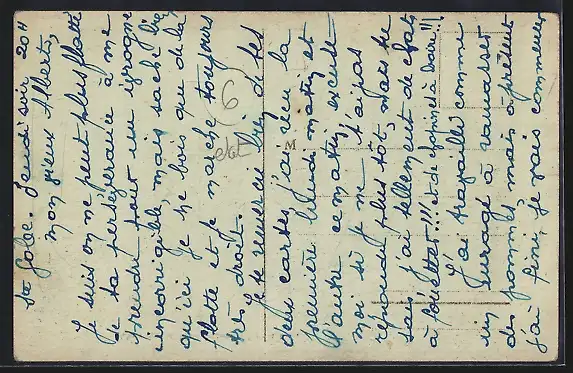 St Gobe. Jeudi soir 20 H
mon vieux Albert,
Je suis on ne peut plus flatté
de ta persévérance à me
prendre pour un ivrogne
incorrigible, mais sache bien
qu'ici je ne bois que de la
flotte et je marche toujours
très droit.
Je te remercie bien de tes
deux cartes, j'ai reçu la
première lundi matin et
l'autre ce matin, excuse
moi si je ne t'ai pas
répondu plus tôt, mais tu
sais j'ai tellement de chats
à fouetter!!! et de à !!!
J'ai travaillé comme
un à ramasser
des pommes, mais à présent
j'ai fini, je vais commencer
6
état
M